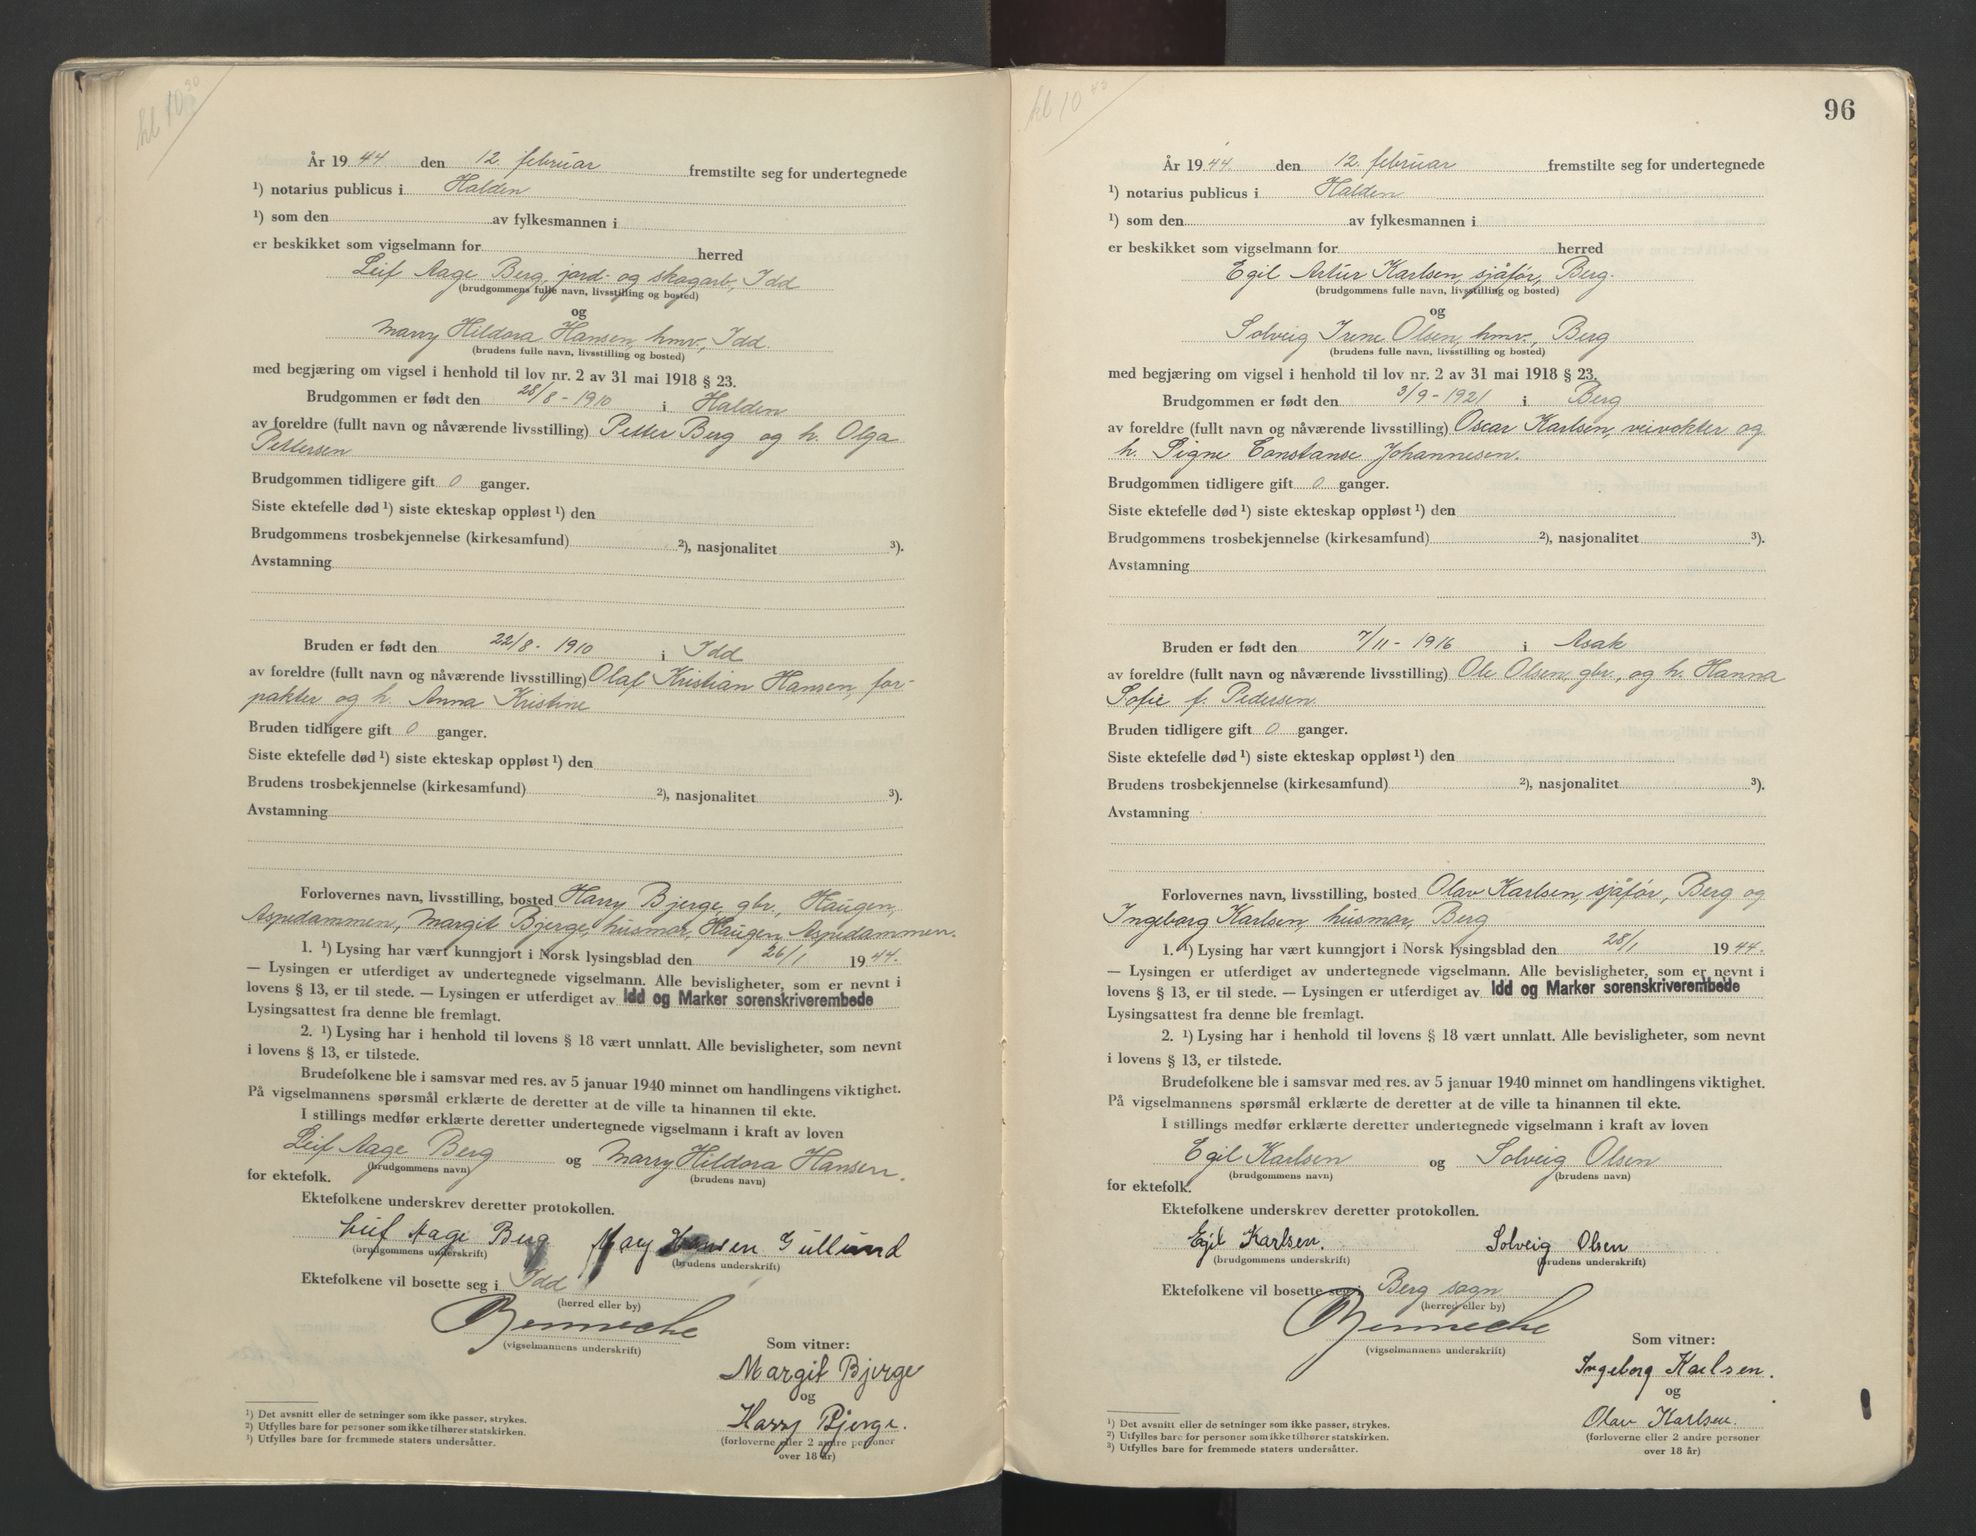 kl 10 30
År 1944 den 12. februar fremstilte seg for undertegnede
¹) notarius publicus i Halden
¹) som den av fylkesmannen i
er beskikket som vigselmann for herred
Leif Aage Berg, jord- og skogarb., Idd
(brudgommens fulle navn, livsstilling og bosted)
og
Marry Hildora Hansen, hmv., Idd.
(brudens fulle navn, livsstilling og bosted)
med begjæring om vigsel i henhold til lov nr. 2 av 31 mai 1918 § 23.
Brudgommen er født den 28/8 - 1910 i Halden
av foreldre (fullt navn og nåværende livsstilling) Petter Berg og h. Olga
Pettersen
Brudgommen tidligere gift 0 ganger.
Siste ektefelle død ¹) siste ekteskap oppløst ¹) den
Brudgommens trosbekjennelse (kirkesamfund) ²), nasjonalitet ³).
Avstamning
Bruden er født den 22/8 - 1910 i Idd
av foreldre (fullt navn og nåværende livsstilling) Olaf Kristian Hansen, for-
pakter og h. Anna Kristine
Bruden tidligere gift 0 ganger.
Siste ektefelle død ¹) siste ekteskap oppløst ¹) den
Brudens trosbekjennelse (kirkesamfund) ²), nasjonalitet ³).
Avstamning
Forlovernes navn, livsstilling, bosted Harry Bjerge, gbr., Haugen,
Aspedammen, Margit Bjerge, husmor, Haugen, Aspedammen.
1. ¹) Lysing har vært kunngjort i Norsk lysingsblad den 26/1 1944.
— Lysingen er utferdiget av undertegnede vigselmann. Alle bevisligheter, som er nevnt i
lovens § 13, er til stede. — Lysingen er utferdiget av Idd og Marker sorenskriverembede
Lysingsattest fra denne ble fremlagt.
2. ¹) Lysing har i henhold til lovens § 18 vært unnlatt. Alle bevisligheter, som nevnt
i lovens § 13, er tilstede.
Brudefolkene ble i samsvar med res. av 5 januar 1940 minnet om handlingens viktighet.
På vigselmannens spørsmål erklærte de deretter at de ville ta hinannen til ekte.
I stillings medfør erklærte deretter undertegnede vigselmann i kraft av loven
Leif Aage Berg og Marry Hildora Hansen.
(brudgommens navn) (brudens navn)
for ektefolk.
Ektefolkene underskrev deretter protokollen.
Leif Aage Berg Mary Hansen Gullund
(brudgommens underskrift) (brudens underskrift)
Ektefolkene vil bosette seg i Idd
(herred eller by)
(vigselmannens underskrift)
Som vitner:
Margit Bjerge
og
Harry Bjerge.
(forloverne eller 2 andre personer
over 18 år)
¹) Det avsnitt eller de setninger som ikke passer, strykes.
²) Utfylles bare for personer som ikke tilhører statskirken.
³) Utfylles bare for fremmede staters undersåtter.
kl 10 45
96
År 1944 den 12. februar fremstilte seg for undertegnede
¹) notarius publicus i Halden
¹) som den av fylkesmannen i
er beskikket som vigselmann for herred
Egil Artur Karlsen, sjåfør, Berg.
(brudgommens fulle navn, livsstilling og bosted)
og
Solveig Irene Olsen, hmv., Berg
(brudens fulle navn, livsstilling og bosted)
med begjæring om vigsel i henhold til lov nr. 2 av 31 mai 1918 § 23.
Brudgommen er født den 3/9 - 1921 i Berg
av foreldre (fullt navn og nåværende livsstilling) Oscar Karlsen, veivokter og
h. Signe Constanse Johannesen.
Brudgommen tidligere gift 0 ganger.
Siste ektefelle død ¹) siste ekteskap oppløst ¹) den
Brudgommens trosbekjennelse (kirkesamfund) ²), nasjonalitet ³).
Avstamning
Bruden er født den 7/11 - 1916 i Asak
av foreldre (fullt navn og nåværende livsstilling) Ole Olsen gbr., og h. Hanna
Sofie f. Pedersen.
Bruden tidligere gift 0 ganger.
Siste ektefelle død ¹) siste ekteskap oppløst ¹) den
Brudens trosbekjennelse (kirkesamfund) ²), nasjonalitet ³).
Avstamning
Forlovernes navn, livsstilling, bosted Olav Karlsen, sjåfør, Berg og
Ingeborg Karlsen, husmor, Berg
1. ¹) Lysing har vært kunngjort i Norsk lysingsblad den 28/1 1944.
— Lysingen er utferdiget av undertegnede vigselmann. Alle bevisligheter, som er nevnt i
lovens § 13, er til stede. — Lysingen er utferdiget av Idd og Marker sorenskriverembede
Lysingsattest fra denne ble fremlagt.
2. ¹) Lysing har i henhold til lovens § 18 vært unnlatt. Alle bevisligheter, som nevnt
i lovens § 13, er tilstede.
Brudefolkene ble i samsvar med res. av 5 januar 1940 minnet om handlingens viktighet.
På vigselmannens spørsmål erklærte de deretter at de ville ta hinannen til ekte.
I stillings medfør erklærte deretter undertegnede vigselmann i kraft av loven
Egil Karlsen og Solveig Olsen
(brudgommens navn) (brudens navn)
for ektefolk.
Ektefolkene underskrev deretter protokollen.
Egil Karlsen. Solveig Olsen
(brudgommens underskrift) (brudens underskrift)
Ektefolkene vil bosette seg i Berg sogn
(herred eller by)
(vigselmannens underskrift)
Som vitner:
Ingeborg Karlsen.
og
Olav Karlsen.
(forloverne eller 2 andre personer
over 18 år)
¹) Det avsnitt eller de setninger som ikke passer, strykes.
²) Utfylles bare for personer som ikke tilhører statskirken.
³) Utfylles bare for fremmede staters undersåtter.